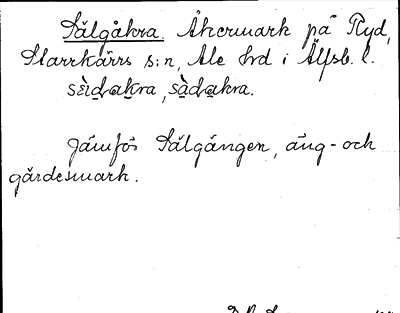 Sälgåkra. Åkermark på Ryd,
Starrkärrs s:n, Ale hrd i Älfsb. l.
jämför Sälgången, äng- och
gärdesmark.